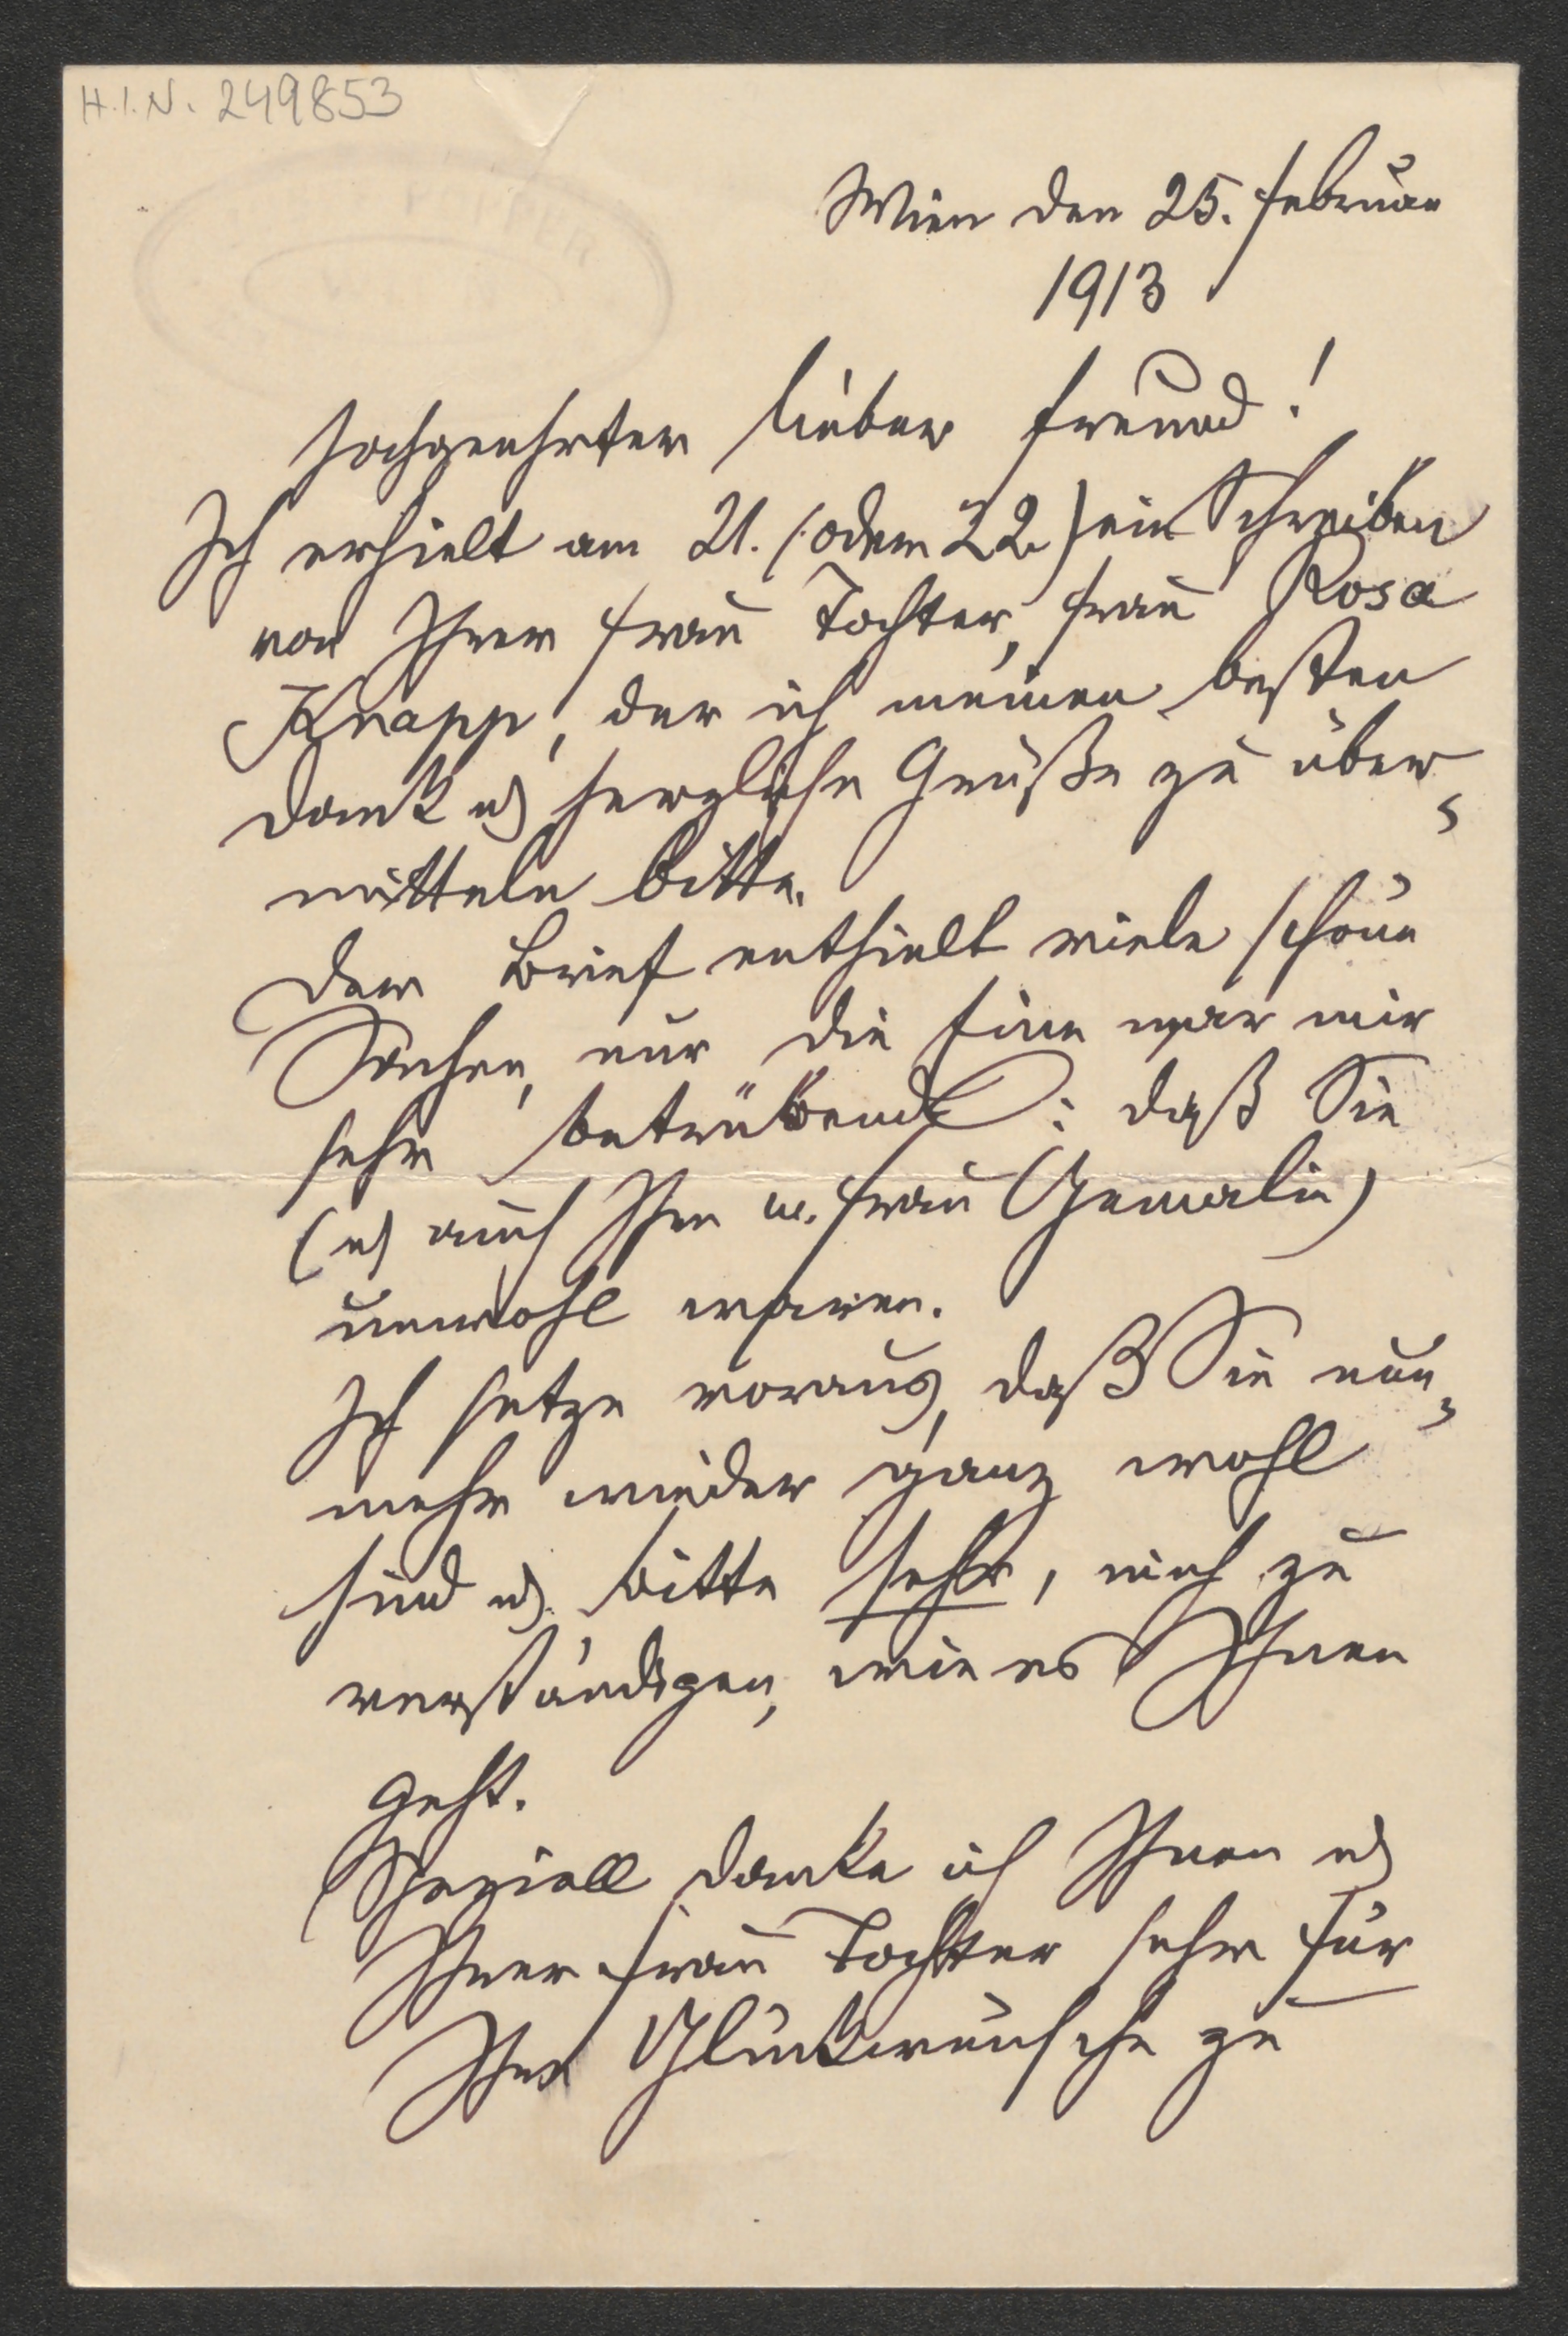 H.I.N. 249853
Wien den 25. Februar
1913
Hochgeehrter lieber Freund!
Ich erhielt am 21. (oder 22) ein Schreiben
von Ihrer Frau Tochter, Frau Rosa
Knapp, der ich meinen besten
Dank u herzliche Grüße zu über-
mitteln bitte.
Der Brief enthielt viele schöne
Sachen, nur die Eine war mir
sehr betrübend: daß Sie
(u auch Ihre w. Frau Gemalin)
unwohl waren.
Ich setze voraus, daß Sie nun-
mehr wieder ganz wohl
sind u. bitte sehr, mich zu
verständigen, wie es Ihnen
geht.
Speziell danke ich Ihnen u
Ihrer Frau Tochter sehr für
Ihre Glückwünsche zu